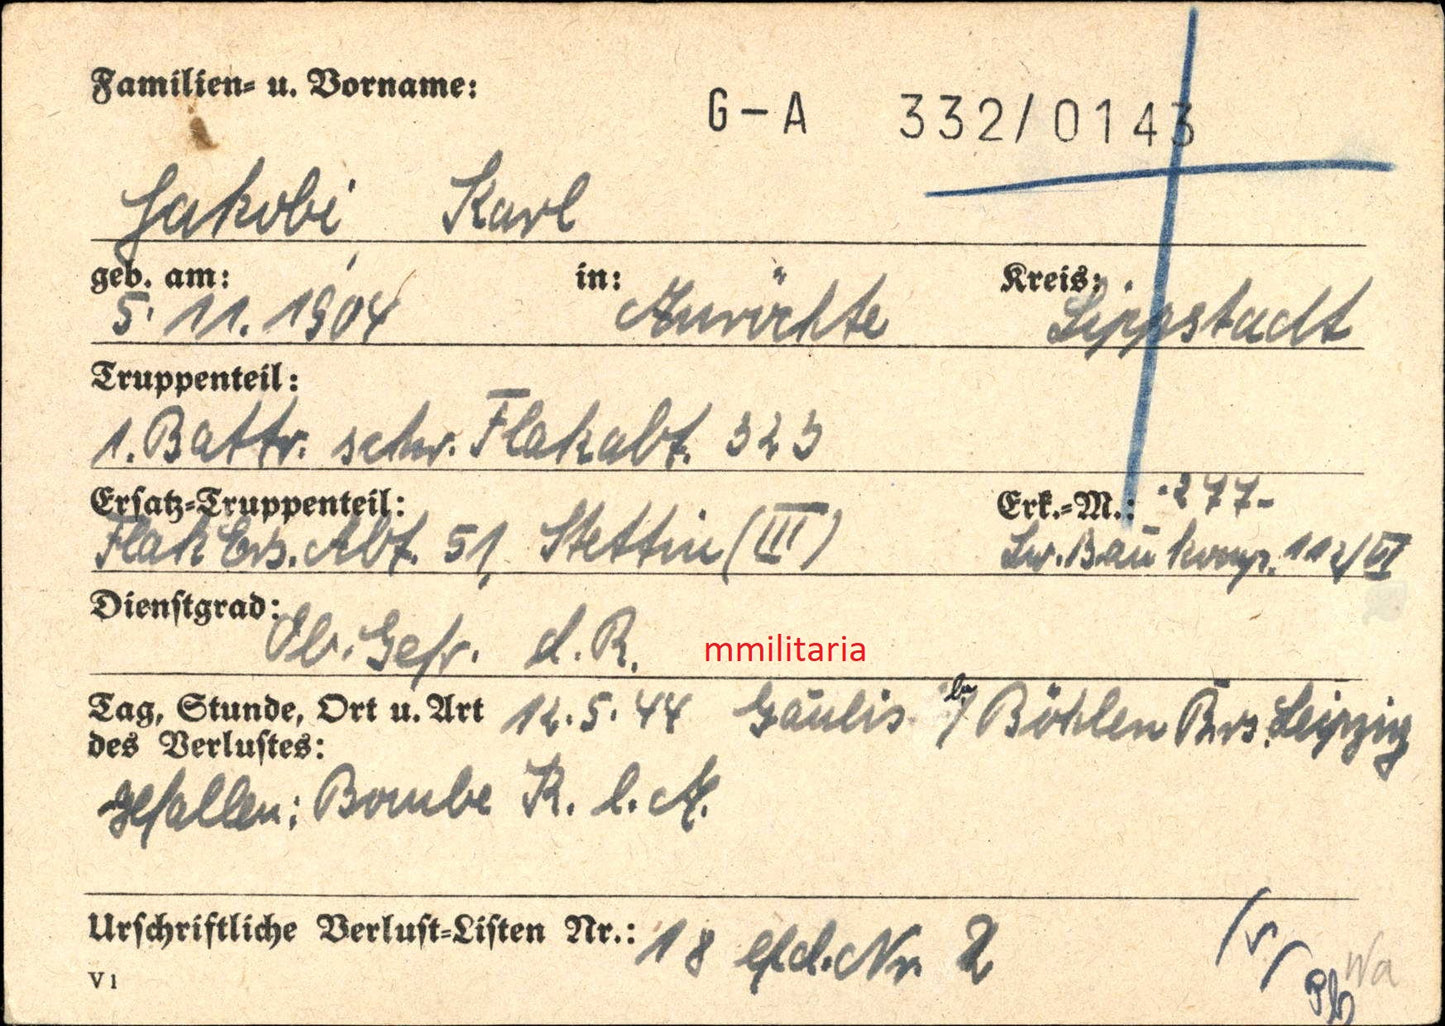 Familien- u. Vorname:
G-A 332/0143
Jakobi Karl
geb. am: in: Kreis:
5.11.1904 Anröchte Lippstadt
Truppenteil:
1. Battr. schw. Flakabt. 323
Ersatz-Truppenteil: Erk.-M.: -277-
Flak Ers. Abt. 51, Stettin (III) Lw. Bau Komp. 112/VI
Dienstgrad:
Ob. Gefr. d. R.
mmilitaria
Tag, Stunde, Ort u. Art 12.5.44 Gaulis b/ Böhlen Leipzig
des Verlustes:
gefallen: Bombe R. l. A.
Urschriftliche Verlust-Listen Nr.: 18 lfd. Nr. 2
V 1
Wa